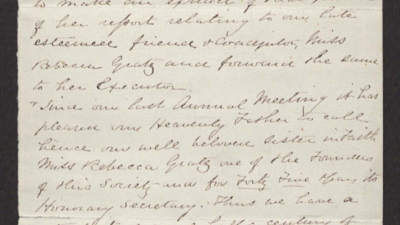 to make an extract of
of her report relating to our late
esteemed friend & Coadjutor, Miss
Rebecca Gratz and forward the same
to her Executor.
"Since our last Annual Meeting it has
pleased our Heavenly Father to call
hence our well beloved sister in faith,
Miss Rebecca Gratz one of the Founders
of this Society and for Forty Five Years its
Honorary Secretary. Thus we have a
century of